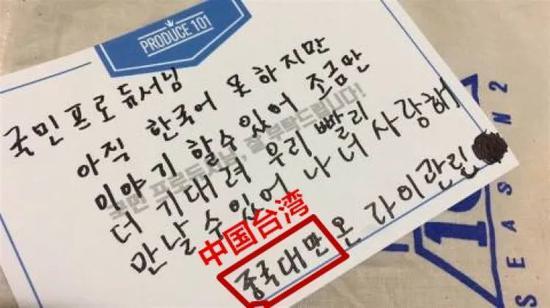 PRODUCE 101
국민 프로듀서님
아직 한국어 못하지만
이야기 할수있어 조금만
더 기대려 우리 빨리
만날 수있어 나 너 사랑해
국민 프로듀서님, 잘 부탁드립니다!
中国台湾
중국대만 온 라이관린
SEASON2